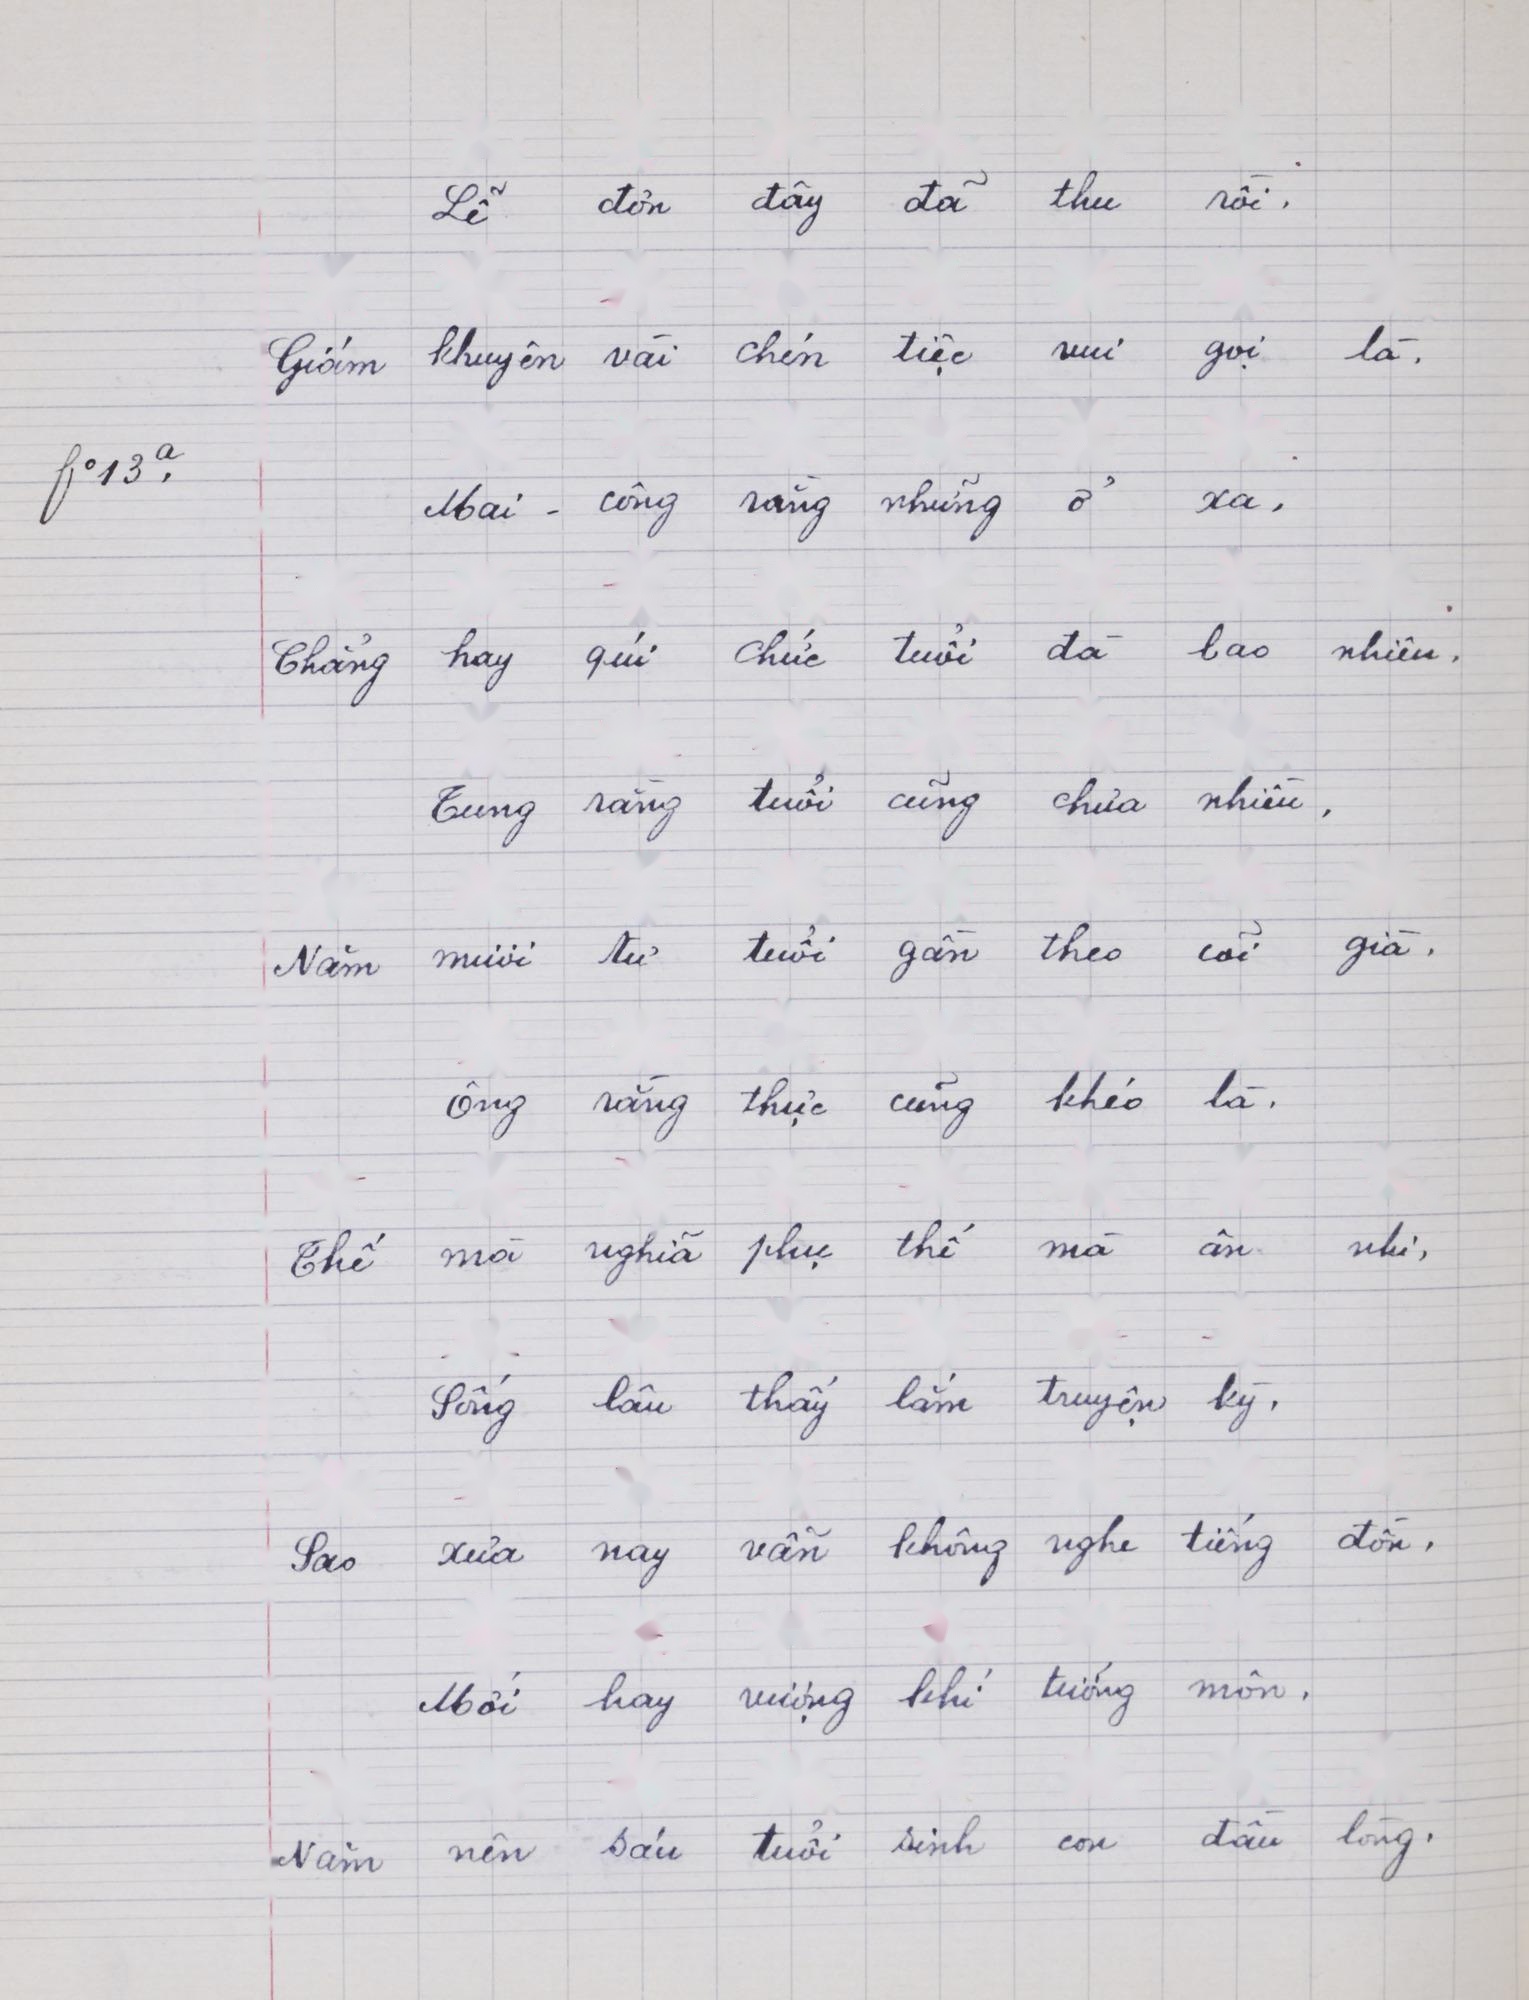 Lễ đơn đây đã thu rồi.
Giám khuyên vài chén tiệc vui gọi là.
fº 13ª.
Mai - công rằng những ở xa.
Chẳng hay quí chức tuổi đà bao nhiêu.
Tung rằng tuổi cũng chưa nhiều.
Năm mươi tư tuổi gần theo cõi già.
Ông rằng thực cũng khéo là.
Thế mà nghĩa phụ thế mà ân nhi.
Sống lâu thấy lắm truyện kỳ.
Sao xưa nay vẫn không nghe tiếng đồn.
Mới hay vượng khí tướng môn.
Năm nên sáu tuổi sinh con đầu lòng.